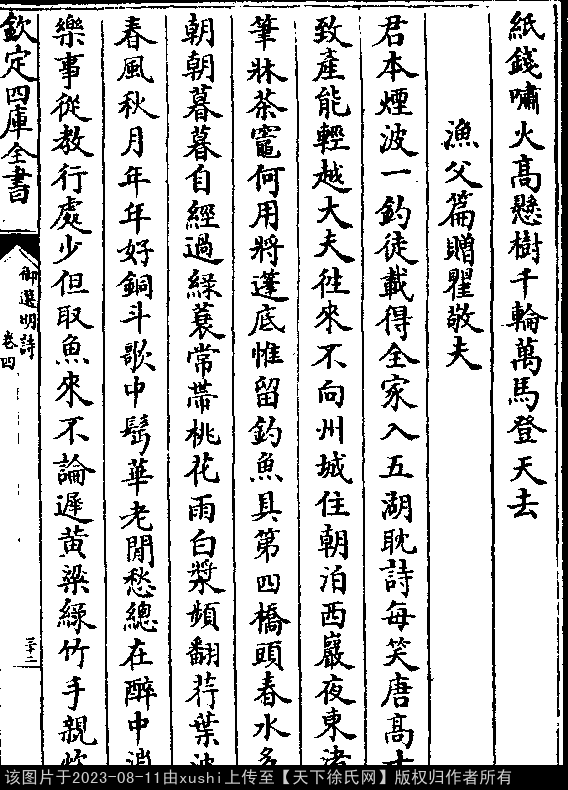 紙錢嘯火髙懸樹千輪萬馬登天去
漁父篇贈瞿敬夫
君本煙波一釣徒載得全家入五湖耽詩每笑唐髙士
致產能輕越大夫往來不向州城住朝泊西巖夜東渚
筆牀茶竈何用將蓬底惟留釣魚具第四橋頭春水多
朝朝暮暮自經過緑蓑常帶桃花雨白槳頻翻荇葉波
春風秋月年年好銅斗歌中髩華老閒愁總在醉中消
樂事從教行處少但取魚來不論遲黄粱緑竹手親炊
欽定四庫全書
御選明詩
卷四
三十二
该图片于2023-08-11由xushi上传至【天下徐氏网】版权归作者所有